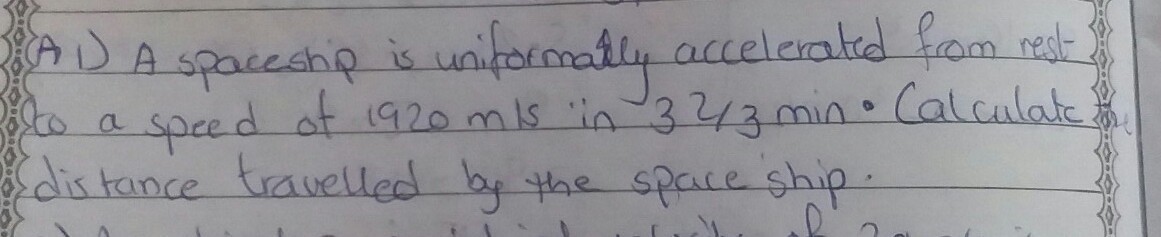 (A 1) A spaceship is uniformatly accelerated from rest
to a speed of 1920 m/s in 3 2/3 min. Calculate the
distance travelled by the space ship.